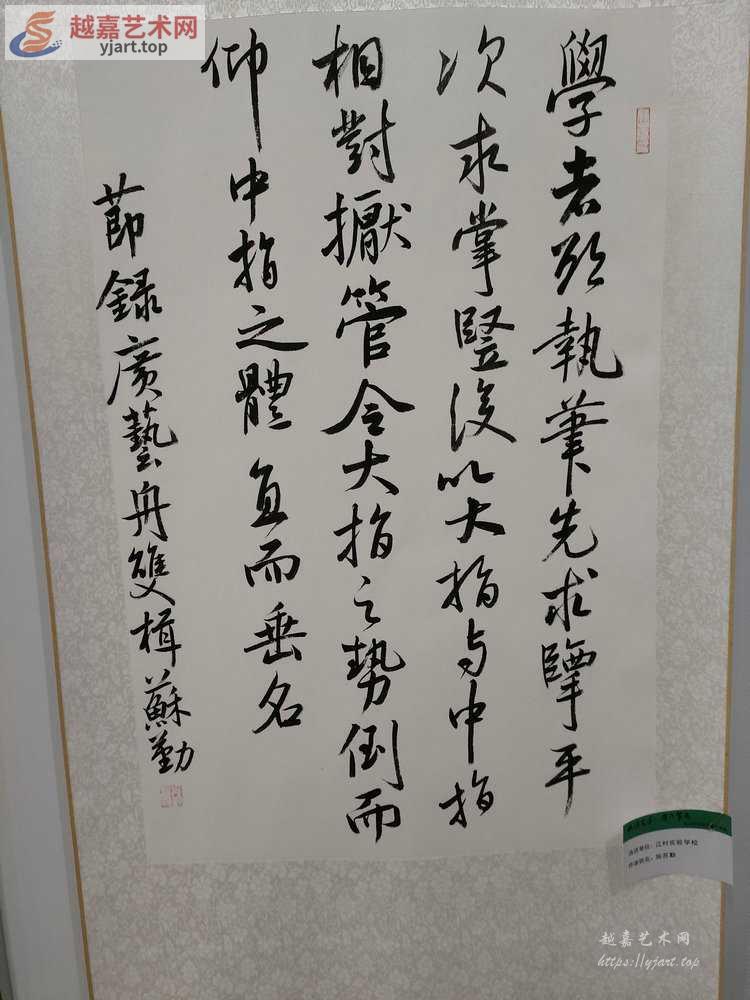 越嘉艺术网
yjart.top
學者欲執筆先求平
次求掌豎後以大指与中指
相對擫管令大指之勢倒而
仰中指之體直而垂名
節錄廣藝舟雙楫蘇勤
实验学校
越嘉艺术网
https://yjart.top